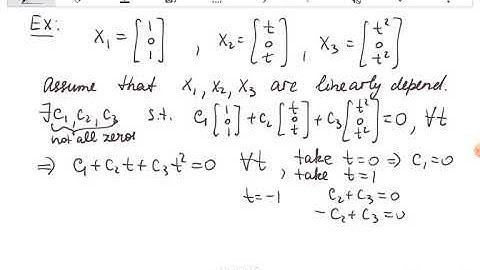 Ex: X₁ = [1 0 1], X₂ = [t 0 t], X₃ = [t² 0 t²]
Assume that X₁, X₂, X₃ are linearly depend.
∃ C₁, C₂, C₃ s.t. C₁ [1 0 1] + C₂ [t 0 t] + C₃ [t² 0 t²] = 0, ∀t
not all zeros
⇒ C₁ + C₂t + C₃t² = 0 ∀t, take t=0 ⇒ C₁=0
take t=1
t=-1 C₂+C₃=0
-C₂+C₃=0